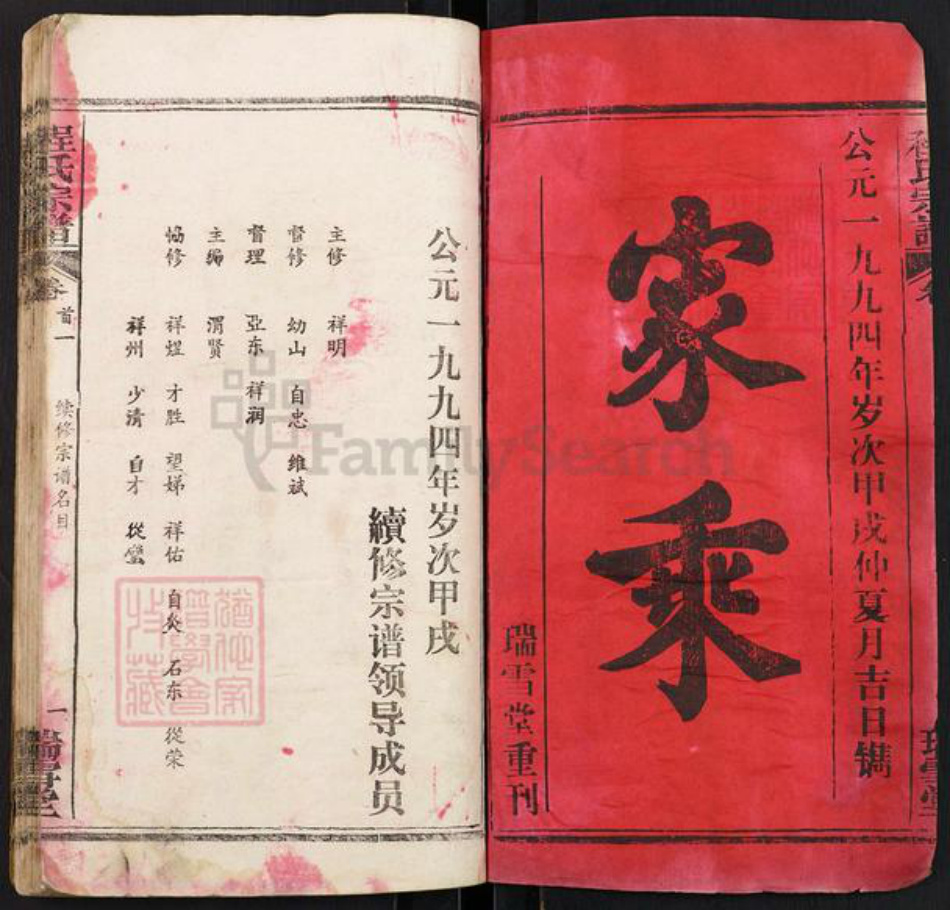 程氏宗譜
公元一九九四年岁次甲戌仲夏月吉日镌
家乘
瑞雪堂重刊
公元一九九四年岁次甲戌
續修宗谱领导成员
主修 祥明
督修 幼山 自忠 维斌
督理 亚东 祥润
主编 渭贤
协修 祥煜 才胜 望娣 祥佑 自炎 石东 從荣
祥州 少清 自才 從蛮
程氏宗譜 卷首一 续修宗谱名目 一 瑞雪堂
FamilySearch